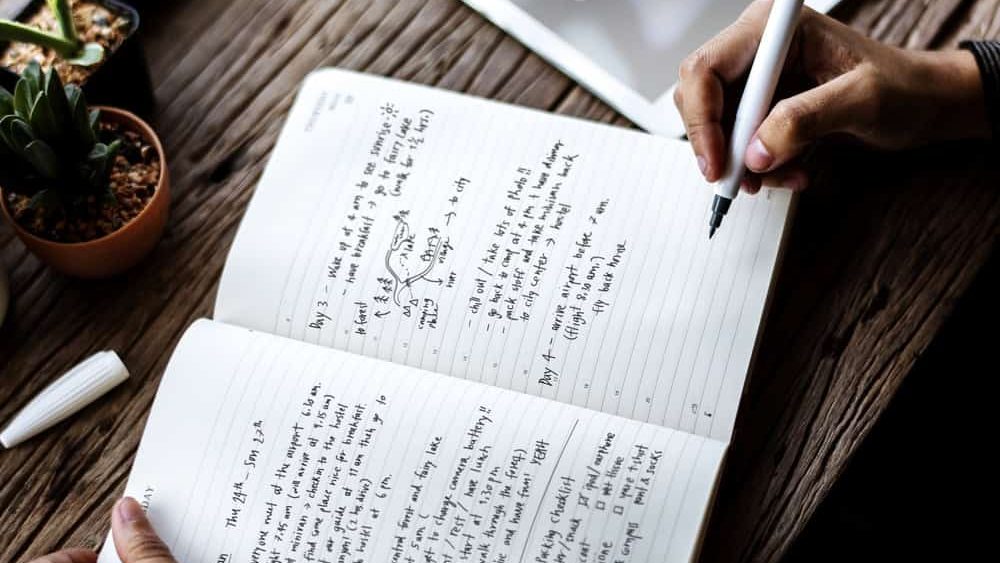 DAY
Thu 24th - Sun 27th
everyone meet at the airport 6.30 am.
7.45 am (will arrive at 9.15 am)
minivan → checkin to the hostel
find some place nice for breakfast.
our guide at 11 am then go to
(2 hrs drive)
hostel at 6 pm.
first and fairy lake
5 am (
to charge camera battery!!
/ rest / have lunch
start at 1.30 pm
walk through the forest)
and have fun! YEAH
packing checklist
snack ☑ ipod/earphone
☐ wet tissue
☐ t-shirt
compass pant & socks
Day 3 - wake up at 4 am to see sunrise
- have breakfast → go to fairy lake
(walk for 1½ hrs.)
to forest
lake
camping
village
river
→ to city
- chill out / take lots of photo!!
- go back to camp at 4 pm + have dinner
- pack stuff and take minivan back
to city center → hostel
Day 4 - arrive airport before 7 am.
(flight 8.30 am.)
fly back home